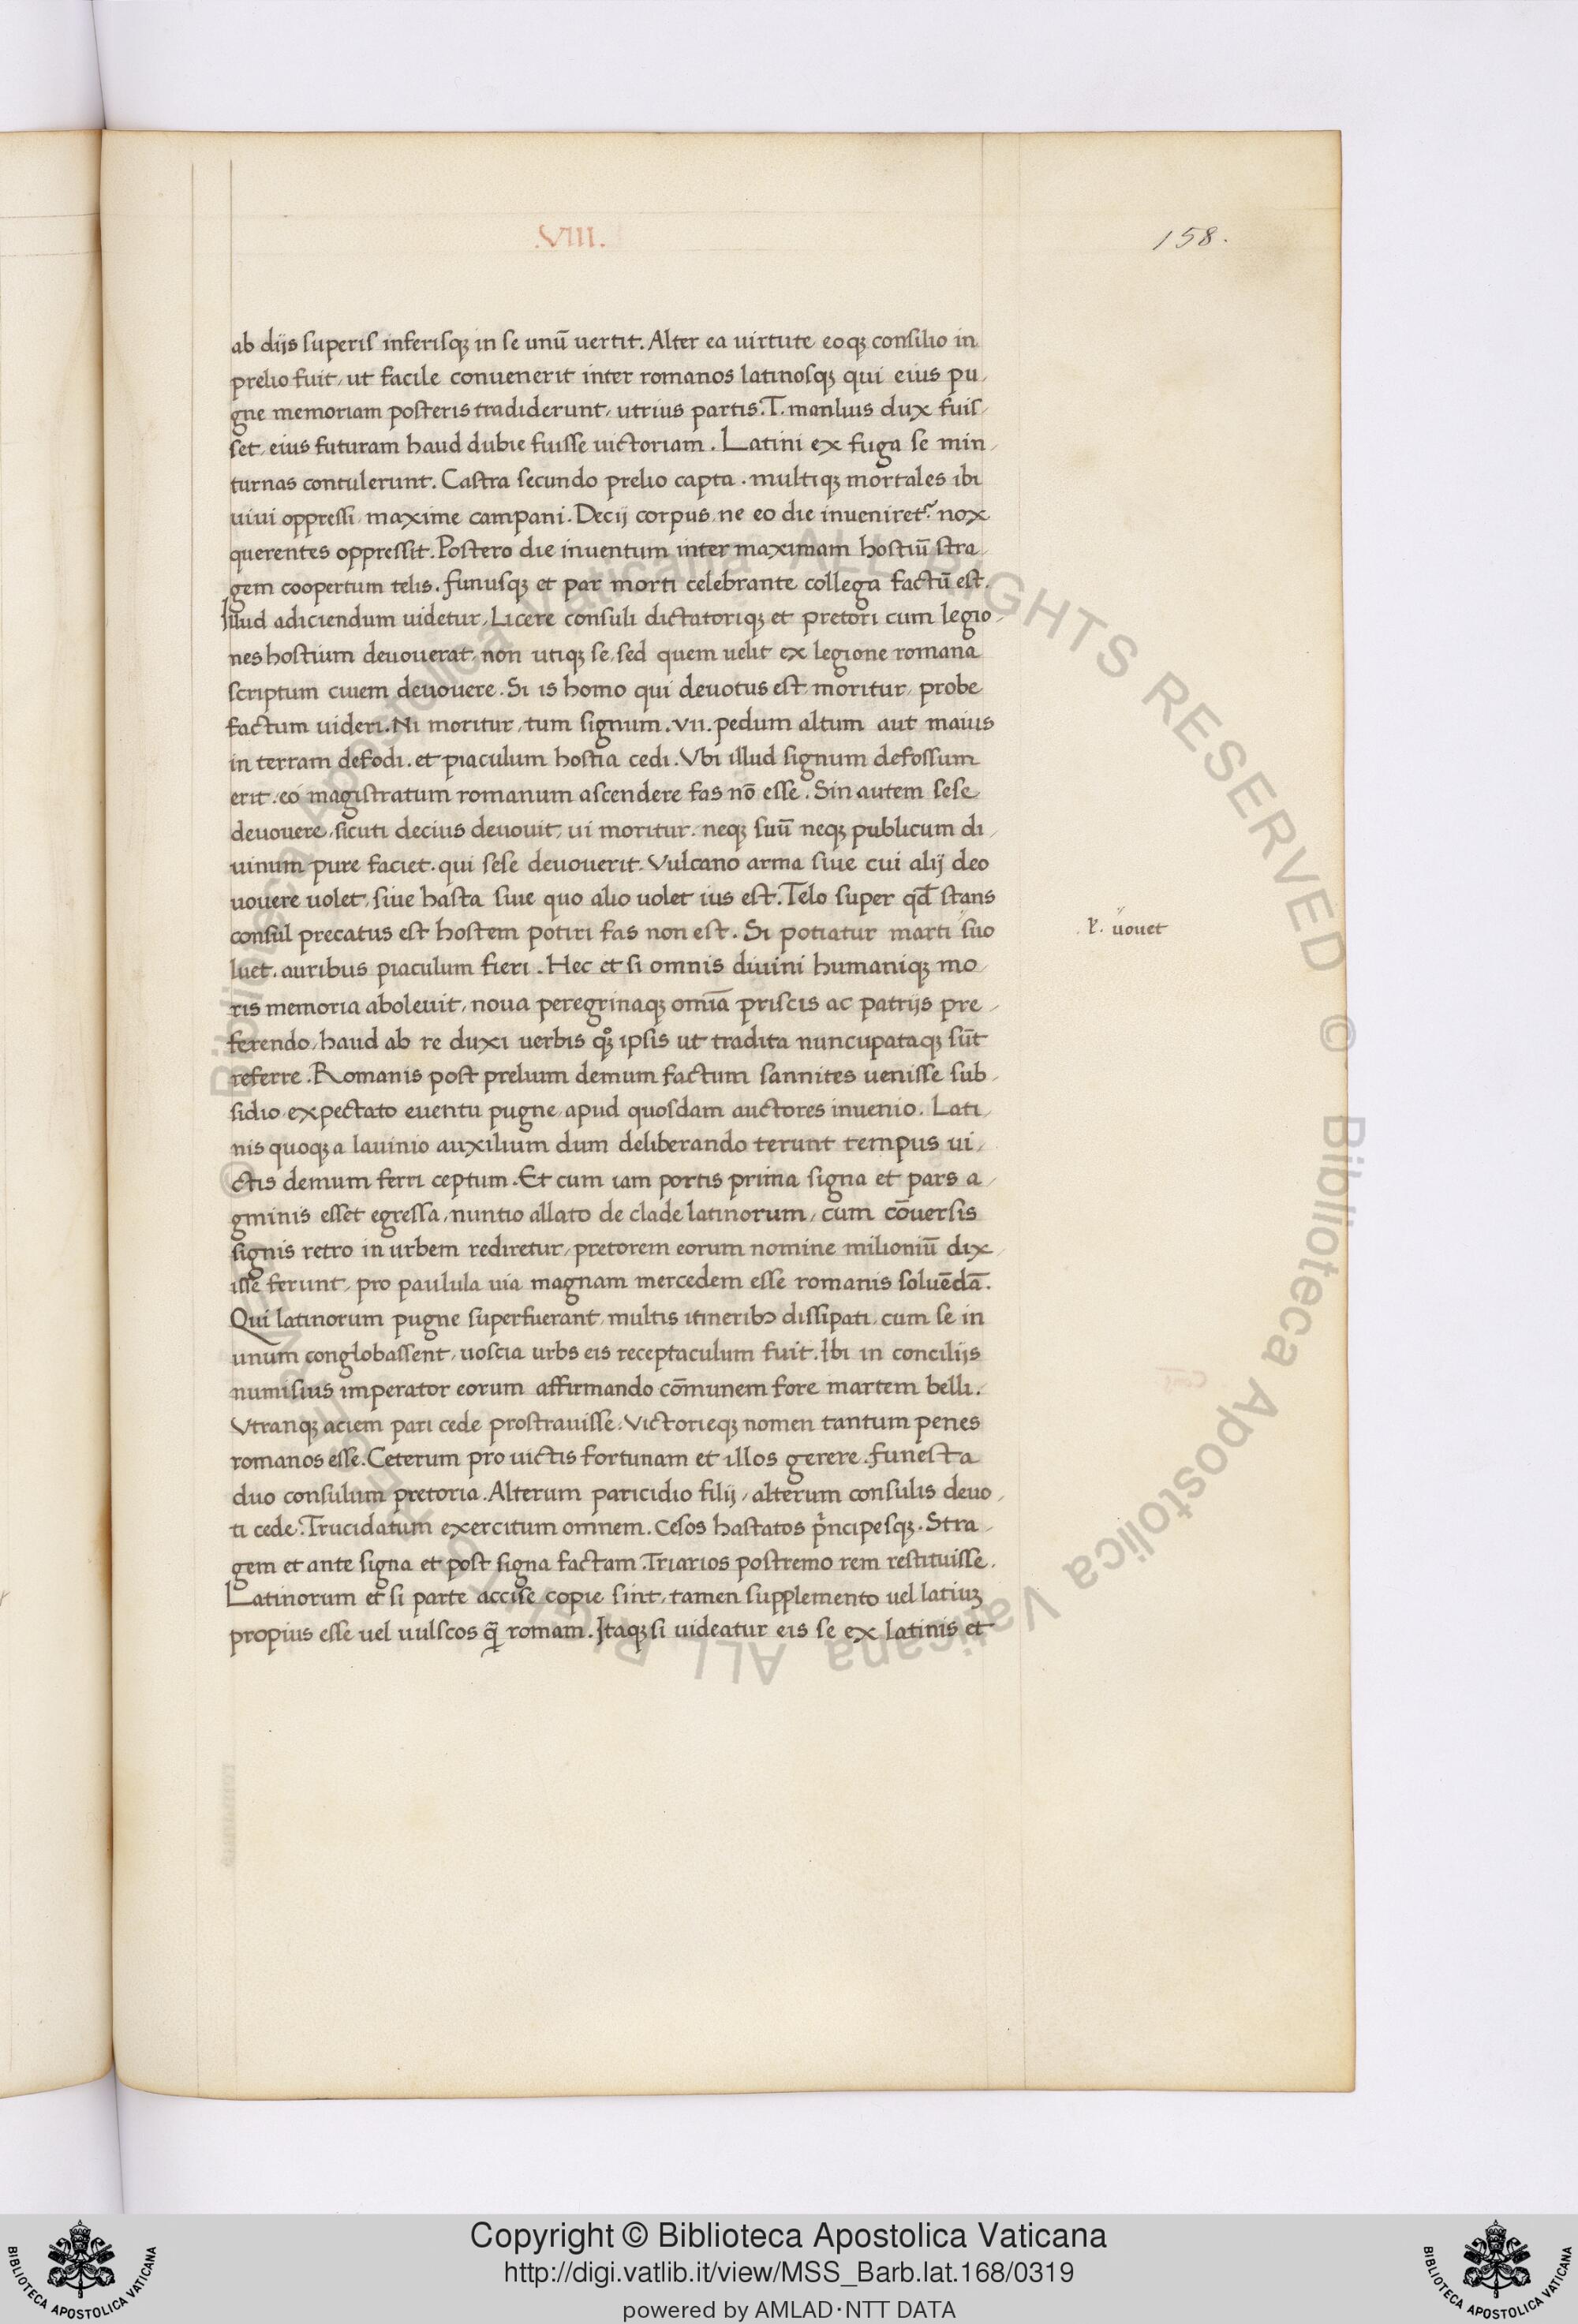 .VIII.
158.
ab dijs superis inferisqꝫ in se unū uertit. Alter ea uirtute eoqꝫ consilio in
prelio fuit, ut facile conuenerit inter romanos latinosqꝫ qui eius pu,
gne memoriam posteris tradiderunt, utrius partis. T. manlius dux fuis,
set, eius futuram haud dubie fuisse uictoriam. Latini ex fuga se min,
turnas contulerunt. Castra secundo prelio capta. multiqꝫ mortales ibi
uiui oppressi, maxime campani. Decij corpus, ne eo die inueniret᷑ nox
querentes oppressit. Postero die inuentum inter maximam hostiū stra,
gem coopertum telis. funusqꝫ et par morti celebrante collega factū est.
Illud adiciendum uidetur, Licere consuli dictatoriqꝫ et pretori cum legio,
nes hostium deuouerat, non utiqꝫ se, sed quem uelit ex legione romana
scriptum ciuem deuouere. Si is homo qui deuotus est moritur, probe
factum uideri. Ni moritur, tum signum. vii. pedum altum aut maius
in terram defodi. et piaculum hostia cedi. Vbi illud signum defossum
erit. eo magistratum romanum ascendere fas nō esse. Sin autem sese
deuouere, sicuti decius deuouit, ui moritur. neqꝫ suū neqꝫ publicum di,
uinum pure faciet. qui sese deuouerit. Vulcano arma siue cui alij deo
uouere uolet, siue hasta siue quo alio uolet ius est. Telo super qd̄ stans
consul precatus est hostem potiri fas non est. Si potiatur marti suo
P. uouet
luet. auribus piaculum fieri. Hec et si omnis diuini humaniqꝫ mo
ris memoria aboleuit, noua peregrinaqꝫ omīa priscis ac patrijs pre,
ferendo, haud ab re duxi uerbis qꝫ̊ ipsis ut tradita nuncupataqꝫ sūt
referre. Romanis post prelium demum factum sannites uenisse sub,
sidio, expectato euentu pugne, apud quosdam auctores inuenio. Lati,
nis quoqꝫ a lauinio auxilium dum deliberando terunt tempus ui,
ctis demum ferri ceptum. Et cum iam portis prima signa et pars a,
gminis esset egressa, nuntio allato de clade latinorum, cum cōuersis
signis retro in urbem rediretur, pretorem eorum nomine milioniū dix,
isse ferunt, pro paulula uia magnam mercedem esse romanis soluēdā.
Qui latinorum pugne superfuerant, multis itineribꝰ dissipati, cum se in
unum conglobassent, uoscia urbs eis receptaculum fuit. Ibi in concilijs
numisius imperator eorum affirmando cōmunem fore martem belli.
Vtranqꝫ aciem pari cede prostrauisse. Victorieqꝫ nomen tantum penes
romanos esse. Ceterum pro uictis fortunam et illos gerere. funesta
duo consulum pretoria. Alterum paricidio filij, alterum consulis deuo,
ti cede. Trucidatum exercitum omnem. Cesos hastatos pͥncipesqꝫ. Stra,
gem et ante signa et post signa factam. Triarios postremo rem restituisse.
Latinorum et si parte accise copie sint, tamen supplemento uel latiuꝫ
propius esse uel uulscos q̄ romam. Itaqꝫ si uideatur eis se ex latinis et
© Biblioteca Apostolica Vaticana ALL RIGHTS RESERVED © Biblioteca Apostolica Vaticana ALL RIGHTS RESERVED
Copyright © Biblioteca Apostolica Vaticana
http://digi.vatlib.it/view/MSS_Barb.lat.168/0319
powered by AMLAD·NTT DATA
BIBLIOTECA APOSTOLICA VATICANA
BIBLIOTECA APOSTOLICA VATICANA